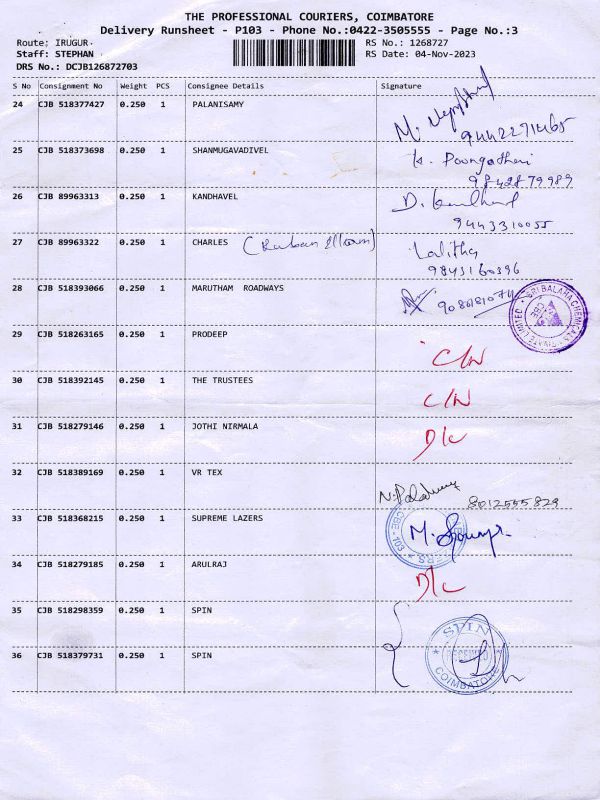 THE PROFESSIONAL COURIERS, COIMBATORE
Delivery Runsheet - P103 - Phone No.:0422-3505555 - Page No.:3
Route: IRUGUR RS No.: 1268727
Staff: STEPHAN RS Date: 04-Nov-2023
DRS No.: DCJB126872703
S No Consignment No Weight PCS Consignee Details Signature
24 CJB 518377427 0.250 1 PALANISAMY
M.
25 CJB 518373698 0.250 1 SHANMUGAVADIVEL
9842879989
26 CJB 89963313 0.250 1 KANDHAVEL D.
9443310055
27 CJB 89963322 0.250 1 CHARLES Lalitha
9843160396
28 CJB 518393066 0.250 1 MARUTHAM ROADWAYS
SRI BALAHA CHEMICALS PRIVATE LIMITED CBE
29 CJB 518263165 0.250 1 PRODEEP C/N
30 CJB 518392145 0.250 1 THE TRUSTEES C/N
31 CJB 518279146 0.250 1 JOTHI NIRMALA D/C
32 CJB 518389169 0.250 1 VR TEX
8012555829
33 CJB 518368215 0.250 1 SUPREME LAZERS M.
CBE - 103
34 CJB 518279185 0.250 1 ARULRAJ D/C
35 CJB 518298359 0.250 1 SPIN
SPIN
36 CJB 518379731 0.250 1 SPIN
COIMBATORE